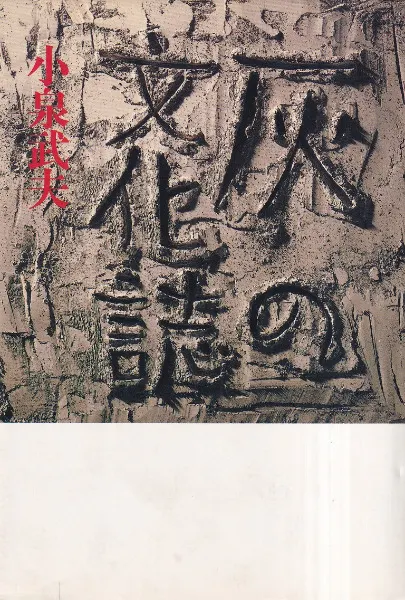 灰の
文化誌
小泉武夫